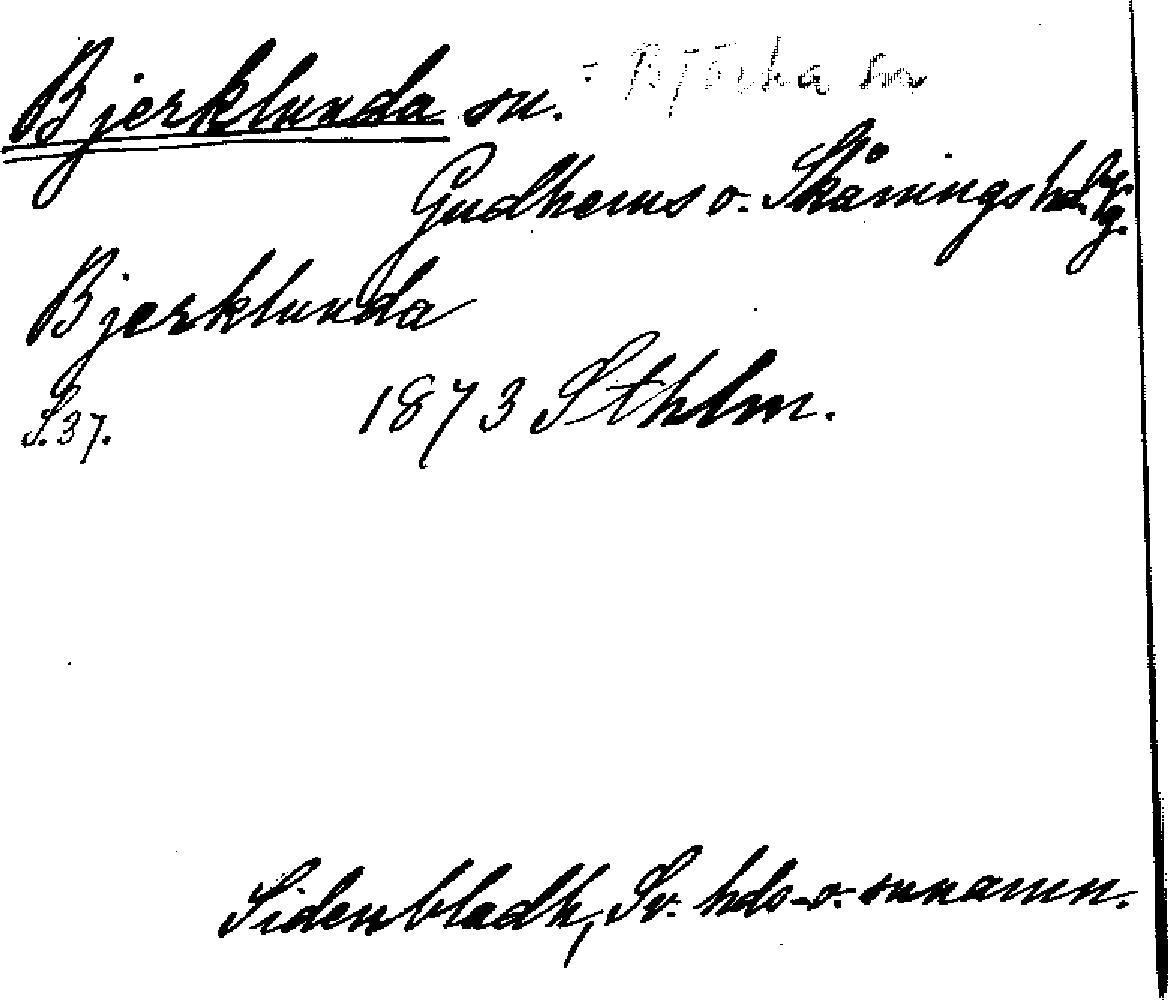 Bjerklunda sn. = Björka sn
Gudhems o. Skånings hd. Vg.
Bjerklunda
S. 37. 1873 Sthlm.
Sidenbladh, Sv. hds- o. snnamn.